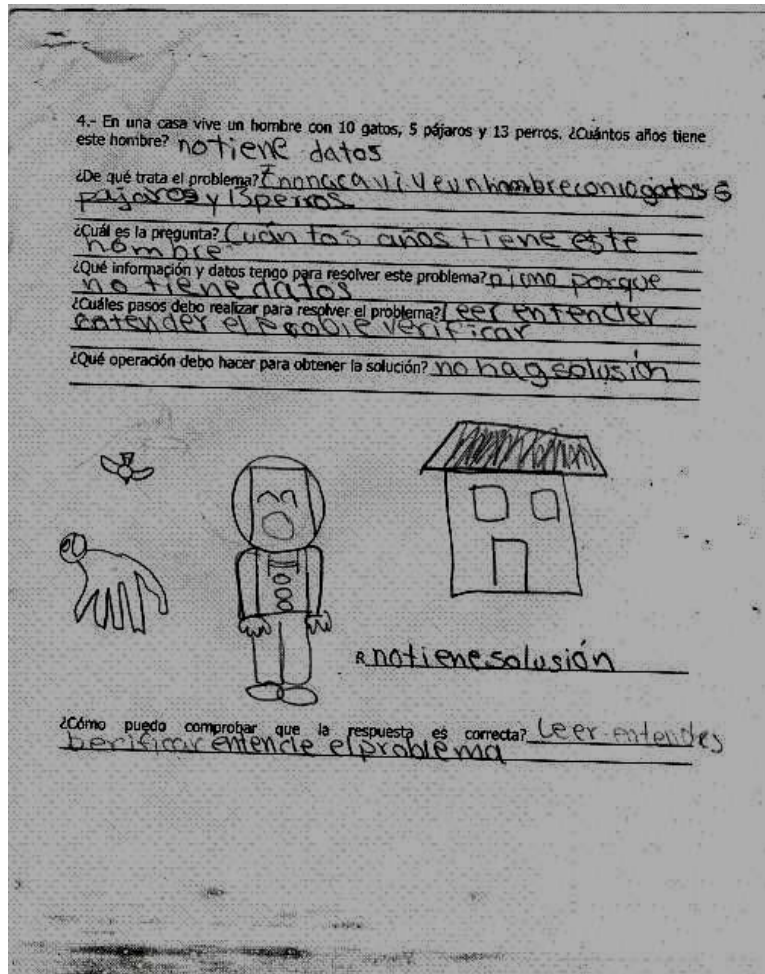 4.- En una casa vive un hombre con 10 gatos, 5 pájaros y 13 perros. ¿Cuántos años tiene
este hombre? no tiene datos
¿De qué trata el problema? En una ca vive un hombre con 10 gatos 5
pajaros y 13 perros
¿Cuál es la pregunta? Cuán tos años tiene este
hombre
¿Qué información y datos tengo para resolver este problema? porque
no tiene datos
¿Cuáles pasos debo realizar para resolver el problema? Leer entender
entender el verificar
¿Qué operación debo hacer para obtener la solución? no hag solusión
R no tiene solusión
¿Cómo puedo comprobar que la respuesta es correcta? Leer entendes
berificar entende el problema